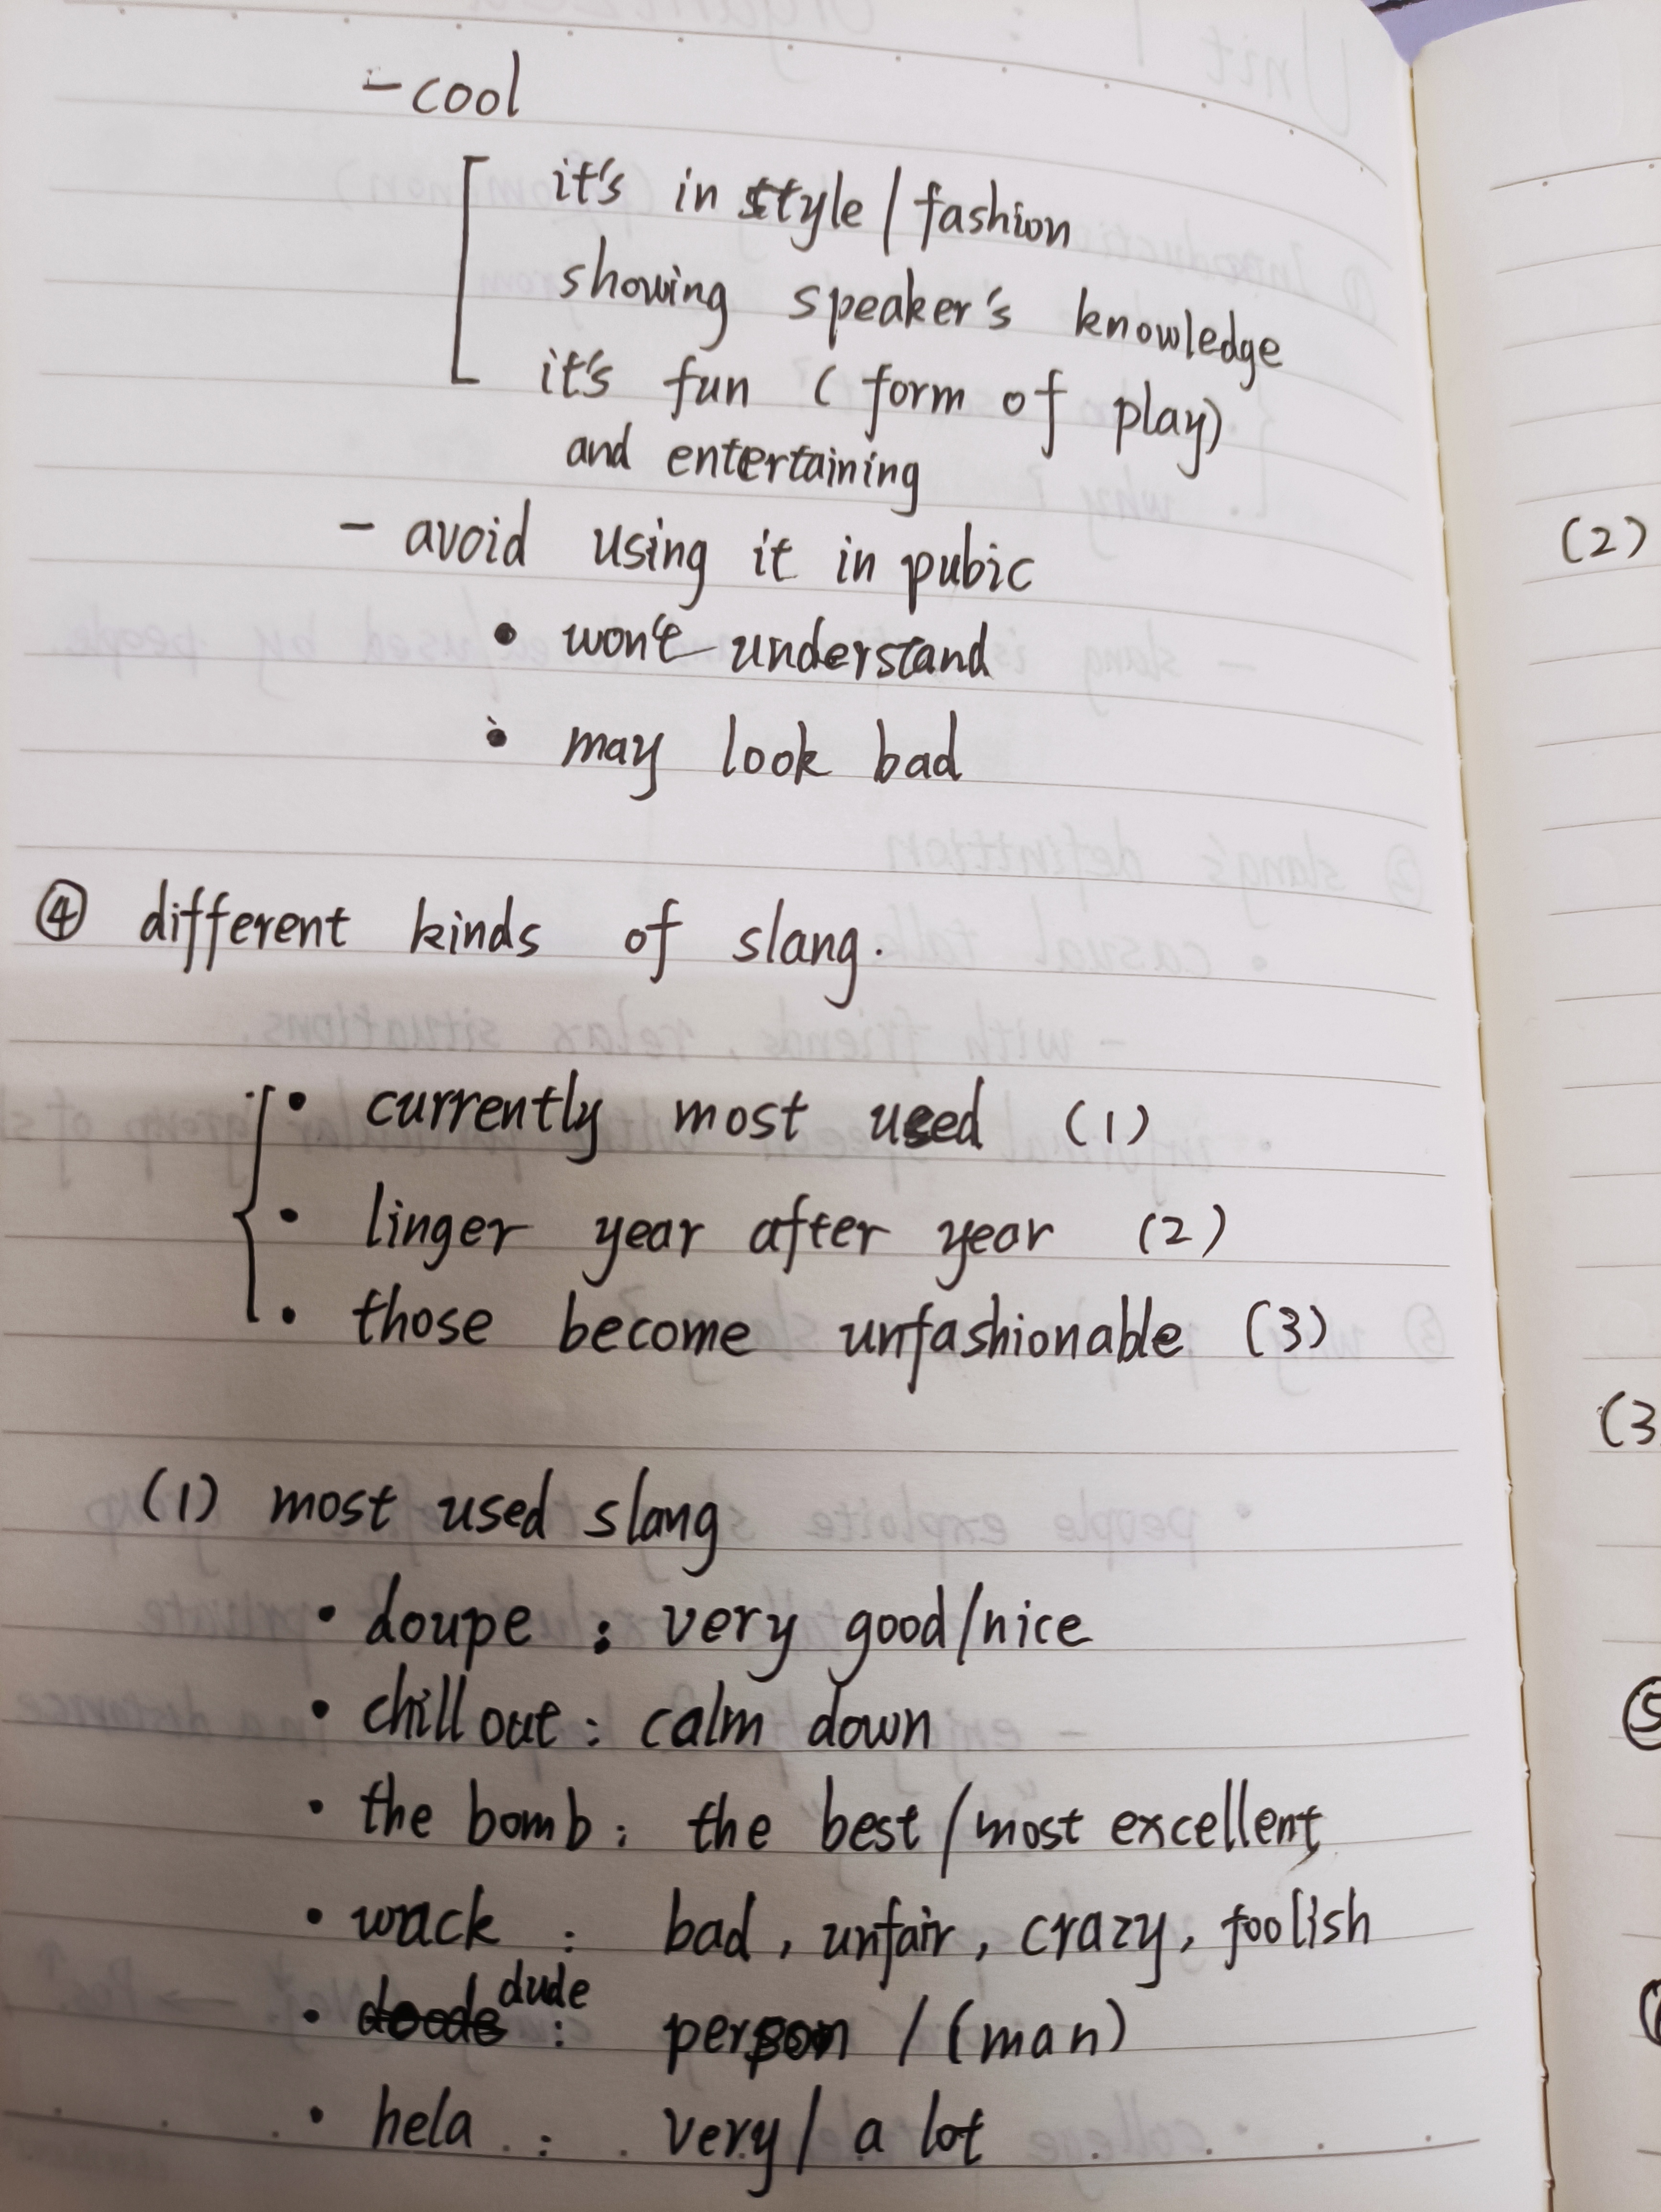 - cool
it's in style / fashion
showing speaker's knowledge
it's fun ( form of play)
and entertaining
- avoid using it in pubic
• won't understand
• may look bad
④ different kinds of slang.
• currently most used (1)
• linger year after year (2)
• those become unfashionable (3)
(1) most used slang
• doupe : very good/nice
• chill out : calm down
• the bomb : the best / most excellent
• wack : bad, unfair, crazy, foolish
• doode dude : person / (man)
• hela : very / a lot
(2)
(3
⑤